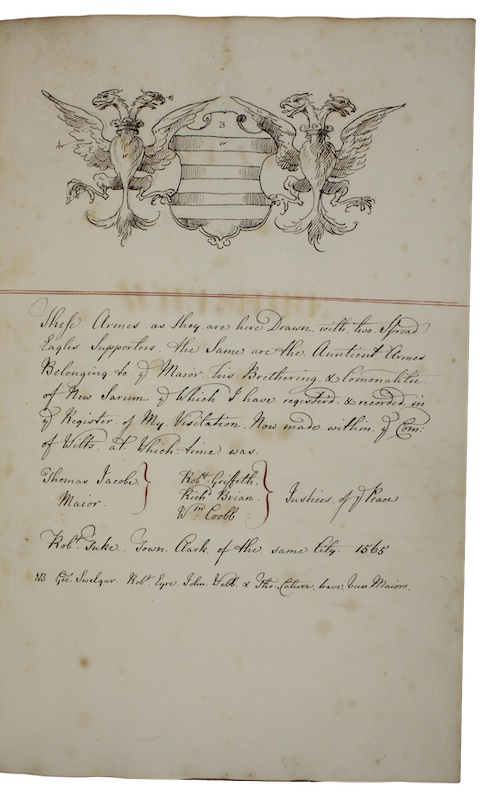 B
or
These Armes as they are here Drawn with two Spread
Eagles Supporters the Same are the Auntient Armes
Belonging to ye Maior his Brethering & Comonalitie
of New Sarum ye Which I have registerd & recorded in
ye Register of My Visitation Now made within ye Com:
of Wilts at Which time was
Thomas Jacobe
Maior.
Robt. Griffeth.
Richd Brian.
Wm Coobb
Justices of ye Peace
Robt. Tuke. Town Clark of the same City. 1565
NB Geo. Robt Eyre. John Webb & Tho. have been Maiors.